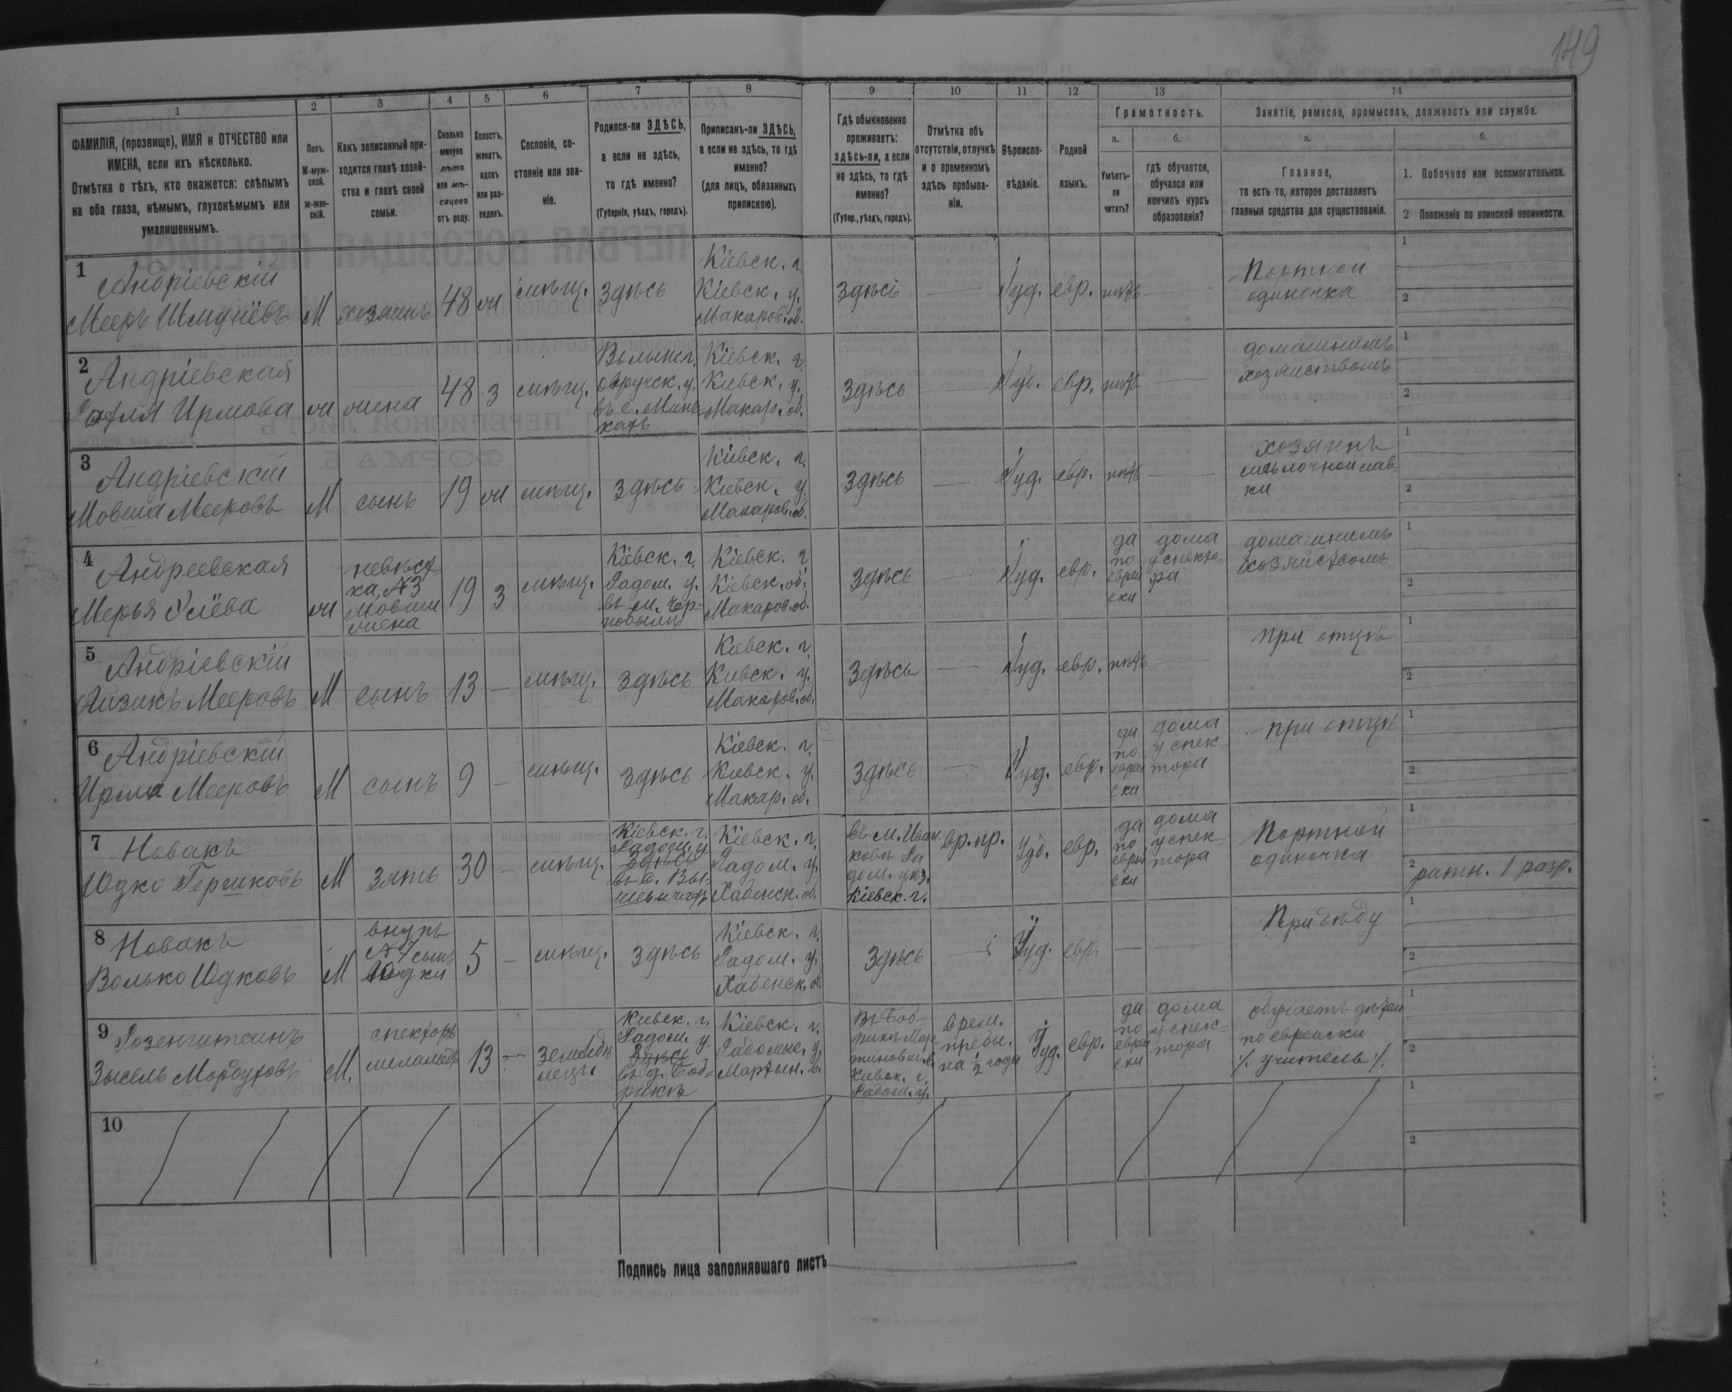 149
1 2 3 4 5 6 7 8 9 10 11 12 13 14
ФАМИЛІЯ, (прозвище), ИМЯ и ОТЧЕСТВО или
ИМЕНА, если ихъ нѣсколько.
Отмѣтка о тѣхъ, кто окажется: слѣпымъ
на оба глаза, нѣмымъ, глухонѣмымъ или
умалишеннымъ.
Полъ.
М-муж-
ской.
ж-жен-
скій.
Какъ записанный при-
ходится главѣ хозяй-
ства и главѣ своей
семьи.
Сколько
минуло
лѣтъ
или мѣ-
сяцевъ
отъ роду.
Холостъ,
женатъ,
вдовъ
или раз-
веденъ.
Сословіе, со-
стояніе или зва-
ніе.
Родился-ли ЗДѢСЬ,
а если не здѣсь,
то гдѣ именно?
(Губернія, уѣздъ, городъ).
Приписанъ-ли ЗДѢСЬ,
а если не здѣсь, то гдѣ
именно?
(для лицъ, обязанныхъ
припискою).
Гдѣ обыкновенно
проживаетъ:
здѣсь-ли, а если
не здѣсь, то гдѣ
именно?
(Губер., уѣздъ, городъ).
Отмѣтка объ
отсутствіи, отлучкѣ
и о временномъ
здѣсь пребыва-
ніи.
Вѣроиспо-
вѣданіе.
Родной
языкъ.
Грамотность.
а.
Умѣетъ-
ли
читать?
б.
гдѣ обучается,
обучался или
кончилъ курсъ
образованія?
Занятіе, ремесло, промыселъ, должность или служба.
а.
Главное,
то есть то, которое доставляетъ
главныя средства для существованія.
б.
1. Побочное или вспомогательное.
2 Положеніе по воинской повинности.
1
Андріевскій
Мееръ Шмулёвъ
М
хозяинъ
48
ж
мѣщ.
здѣсь
Кіевск. г.
Кіевск. у.
Макаров. об.
здѣсь
—
Іуд.
евр.
нѣтъ
—
Портной
одиночка
1
2
2
Андріевская
Ирмова
ж
жена
48
з
мѣщ.
Волынс г.
овручск. у.
Кіевск. г.
Кіевск. у.
Макар. об.
здѣсь
—
Іуд.
евр.
нѣтъ
—
домашнимъ
хозяйствомъ
1
2
3
Андріевскій
Мовша Мееровъ
М
сынъ
19
ж
мѣщ.
здѣсь
Кіевск. г.
Кіевск. у.
Макаров. об.
здѣсь
—
Іуд.
евр.
нѣтъ
—
хозяинъ
мелочной лав
ки
1
2
4
Андреевская
Мерья
ж
невѣст
ка, №3
Мовши
жена
19
з
мѣщ.
Кіевск. г.
Радом. у.
въ м. Чер-
нобылѣ
Кіевск. г.
Кіевск. об.
Макаров. об.
здѣсь
—
Іуд.
евр.
да
по
еврей
ски
дома
у спекто-
ра
домашнимъ
хозяйствомъ
1
2
5
Андріевскій
Айзикъ Мееровъ
М
сынъ
13
—
мѣщ.
здѣсь
Кіевск. г.
Кіевск. у.
Макаров. об.
здѣсь
—
Іуд.
евр.
нѣтъ
—
при отцѣ
1
2
6
Андріевскій
Ирма Мееровъ
М
сынъ
9
—
мѣщ.
здѣсь
Кіевск. г.
Кіевск. у.
Макар. об.
здѣсь
—
Іуд.
евр.
да
по
еврей
ски
дома
у спек
тора
при отцѣ
1
2
7
Новакъ
Юдко Гершковъ
М
зять
30
—
мѣщ.
Кіевск. г.
Радом. у.
здѣсь
въ с.
Кіевск. г.
Радом. у.
Хабенск. об.
въ м. Иван
ковѣ Ра
дом. уѣз.
Кіевск. г.
вр. пр.
Іуд.
евр.
да
по
еврей
ски
дома
у спек-
тора
Портной
одиночка
1
2 ратн. 1 разр.
8
Новакъ
Волько Юдковъ
М
внукъ
№7 сынъ
Юдки
5
—
мѣщ.
здѣсь
Кіевск. г.
Радом. у.
Хабенск. об.
здѣсь
—
Іуд.
евр.
—
—
При дѣду
1
2
9
Розенштейнъ
Зысель Мордуховъ
М.
спекторъ
меламедъ
13
—
земледѣ
лецъ
Кіевск. г.
Радом. у.
здѣсь
Кіевск. г.
Радомыс. у.
Мартын. в.
Кіевск. г.
Радом. у.
врем.
пребы.
на 1/2 года
Іуд.
евр.
да
по
еврей
ски
дома
у спек-
тора
обучаетъ дѣтей
по еврейски
/. учитель /.
1
2
10
1
2
Подпись лица заполнявшаго листъ